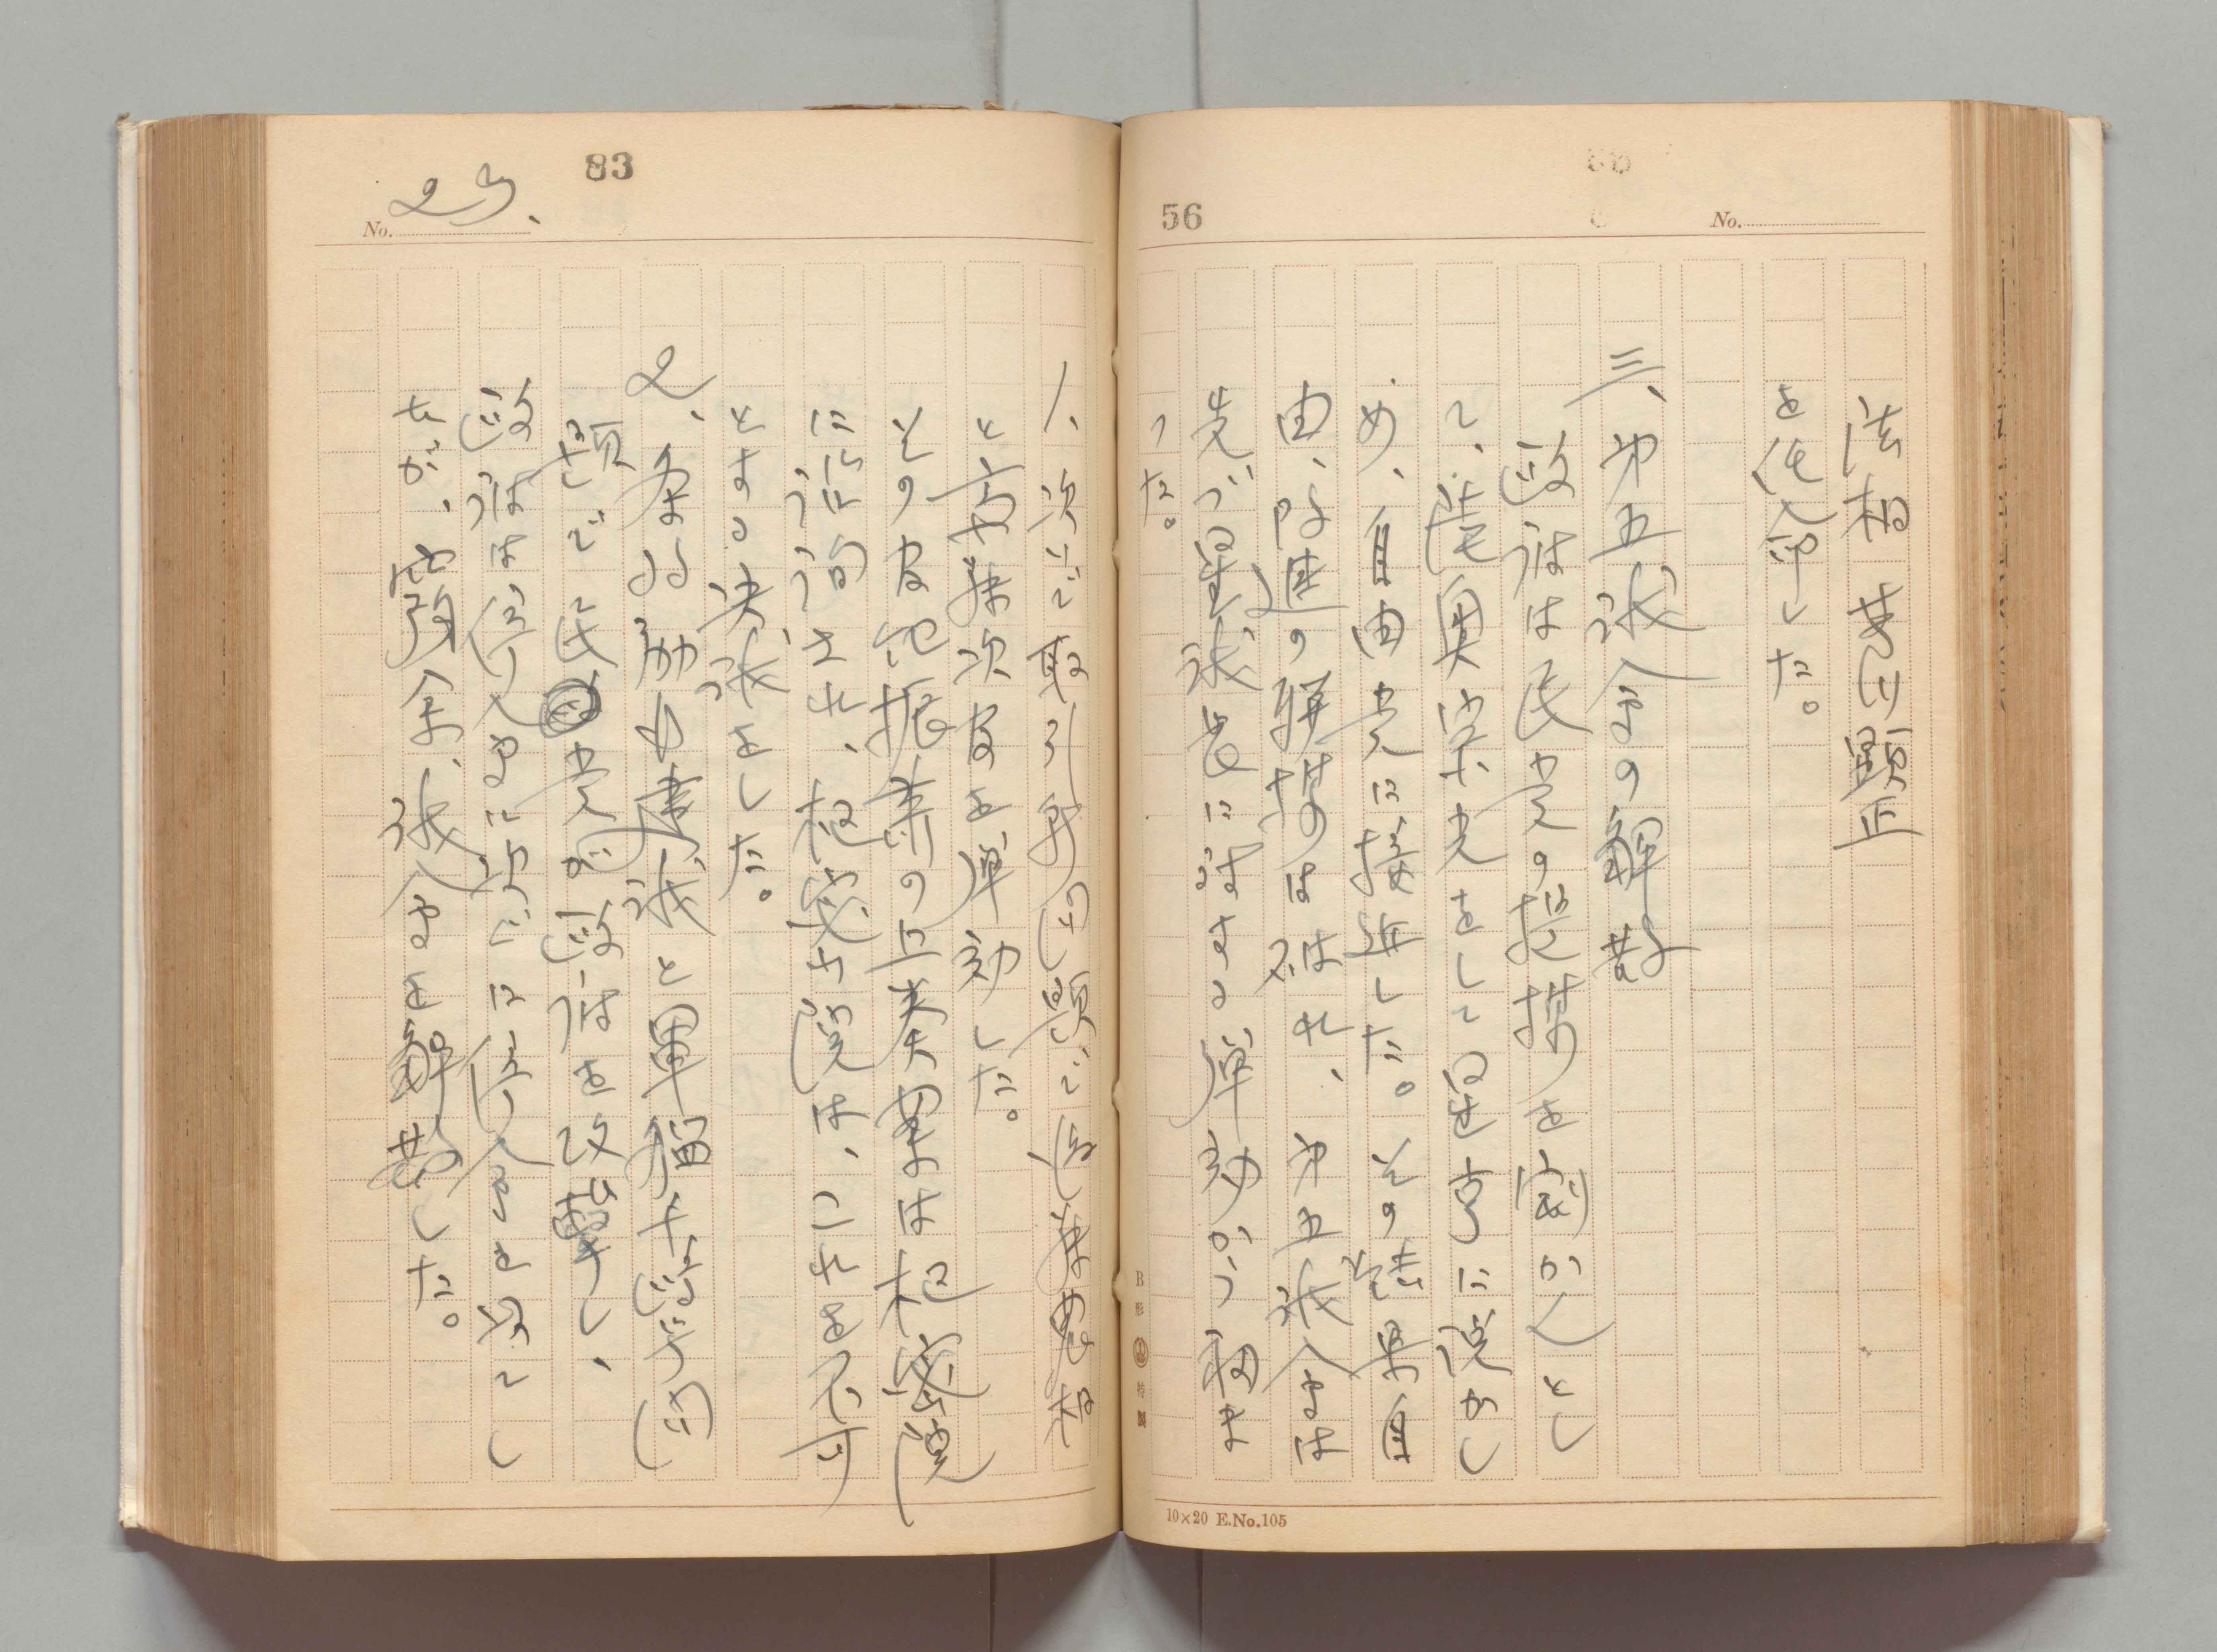 56
No.
法相 芳川顕正
を任命した。
三、才五議会の解散
政府は民党の提携を割かんとし
て、陸奥宗光をして星亨に説かし
め、自由党に接近した。その結果自
由、改進の聯携は破れ、才五議会は
先づ星議長に対する弾劾から初ま
った。
B形 特製
10×20 E.No.105
83
No. 23.
1、次いで取引所問題で後藤農相
と斎藤次官を弾劾した。
その官紀振粛の上奏案は枢密院
に諮詢され、枢密院は、これを不可
とする決議をした。
2、条約励行建議と軍艦千島号問
題で民党が政府を攻撃し、
政府は停会に次ぐに停会を以てし
たが、議会を解散した。